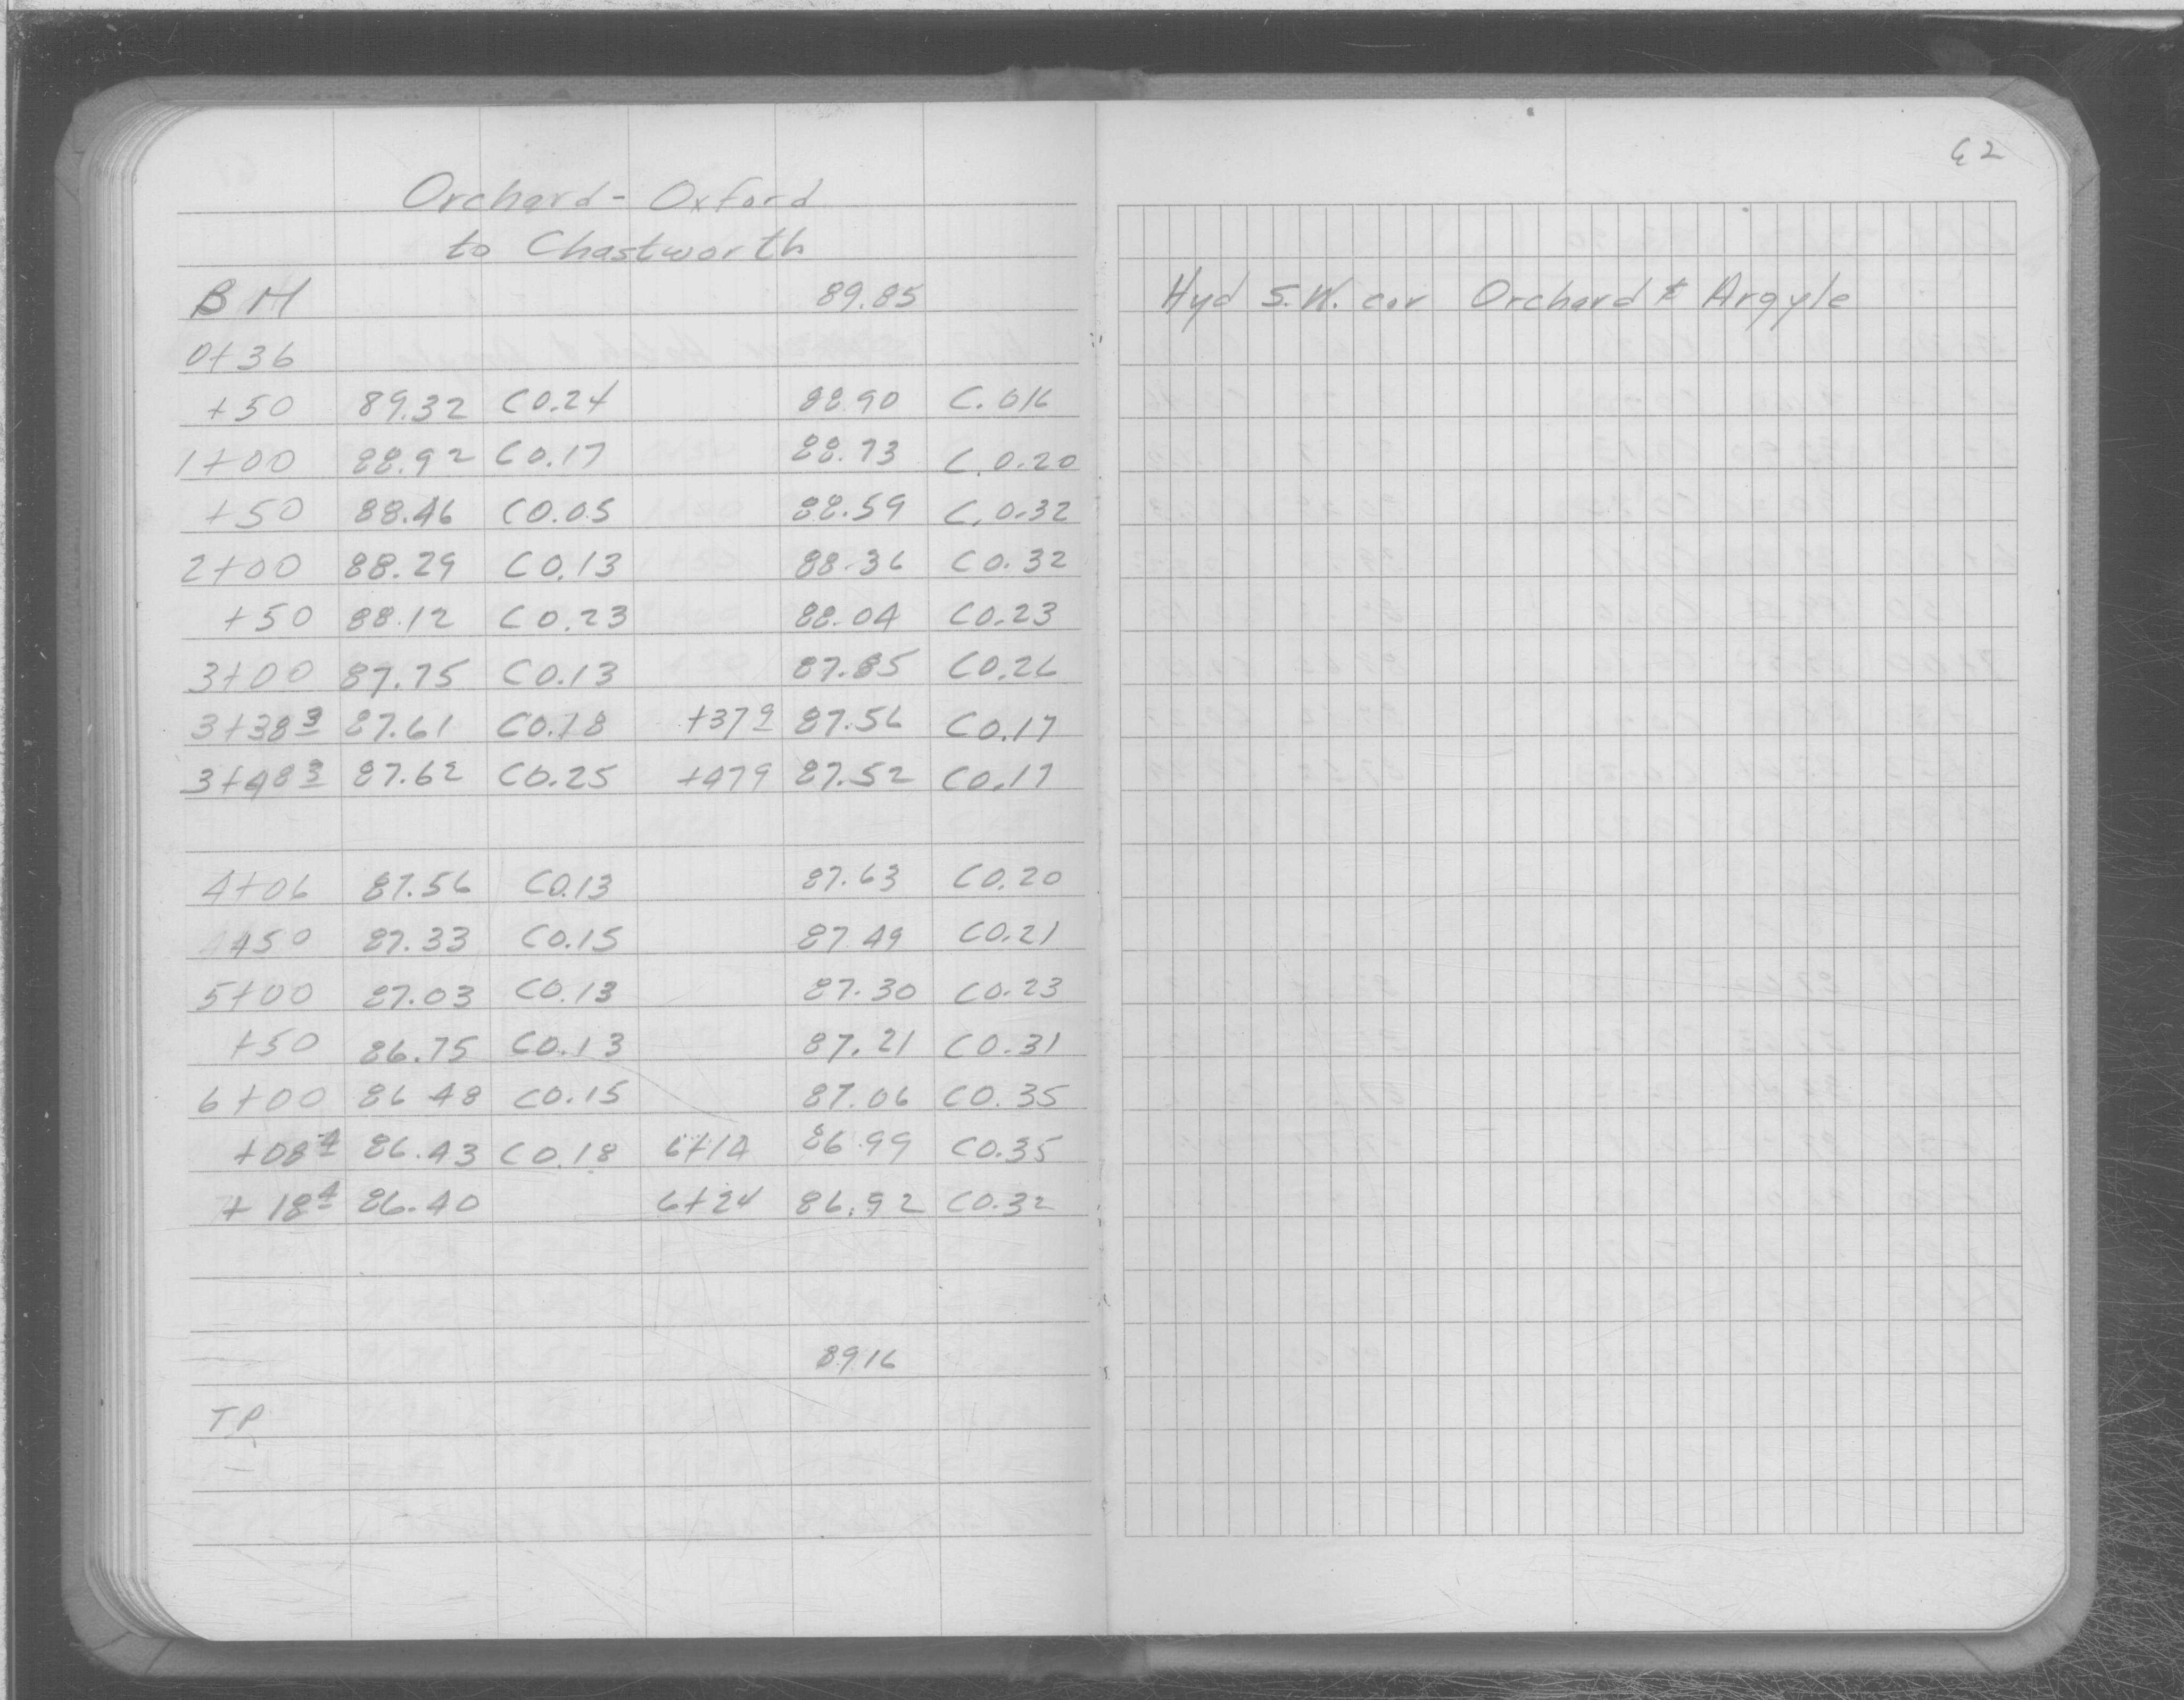 62
Orchard - Oxford
to Chastworth
BM 89.85 Hyd S.W. cor Orchard & Argyle
0+36
+50 89.32 C0.24 88.90 C.016
1+00 88.92 C0.17 88.73 C.0.20
+50 88.46 C0.05 88.59 C.0.32
2+00 88.29 C0.13 88.36 C0.32
+50 88.12 C0.23 88.04 C0.23
3+00 87.75 C0.13 87.85 C0.26
3+38 3 87.61 C0.18 +37 9 87.56 C0.17
3+48 3 87.62 C0.25 +479 87.52 C0.17
4+06 87.56 C0.13 87.63 C0.20
+50 87.33 C0.15 87.49 C0.21
5+00 87.03 C0.13 87.30 C0.23
+50 86.75 C0.13 87.21 C0.31
6+00 86 48 C0.15 87.06 C0.35
+08 4 86.43 C0.18 6+14 86.99 C0.35
+18 4 86.40 6+24 86.92 C0.32
89.16
TP